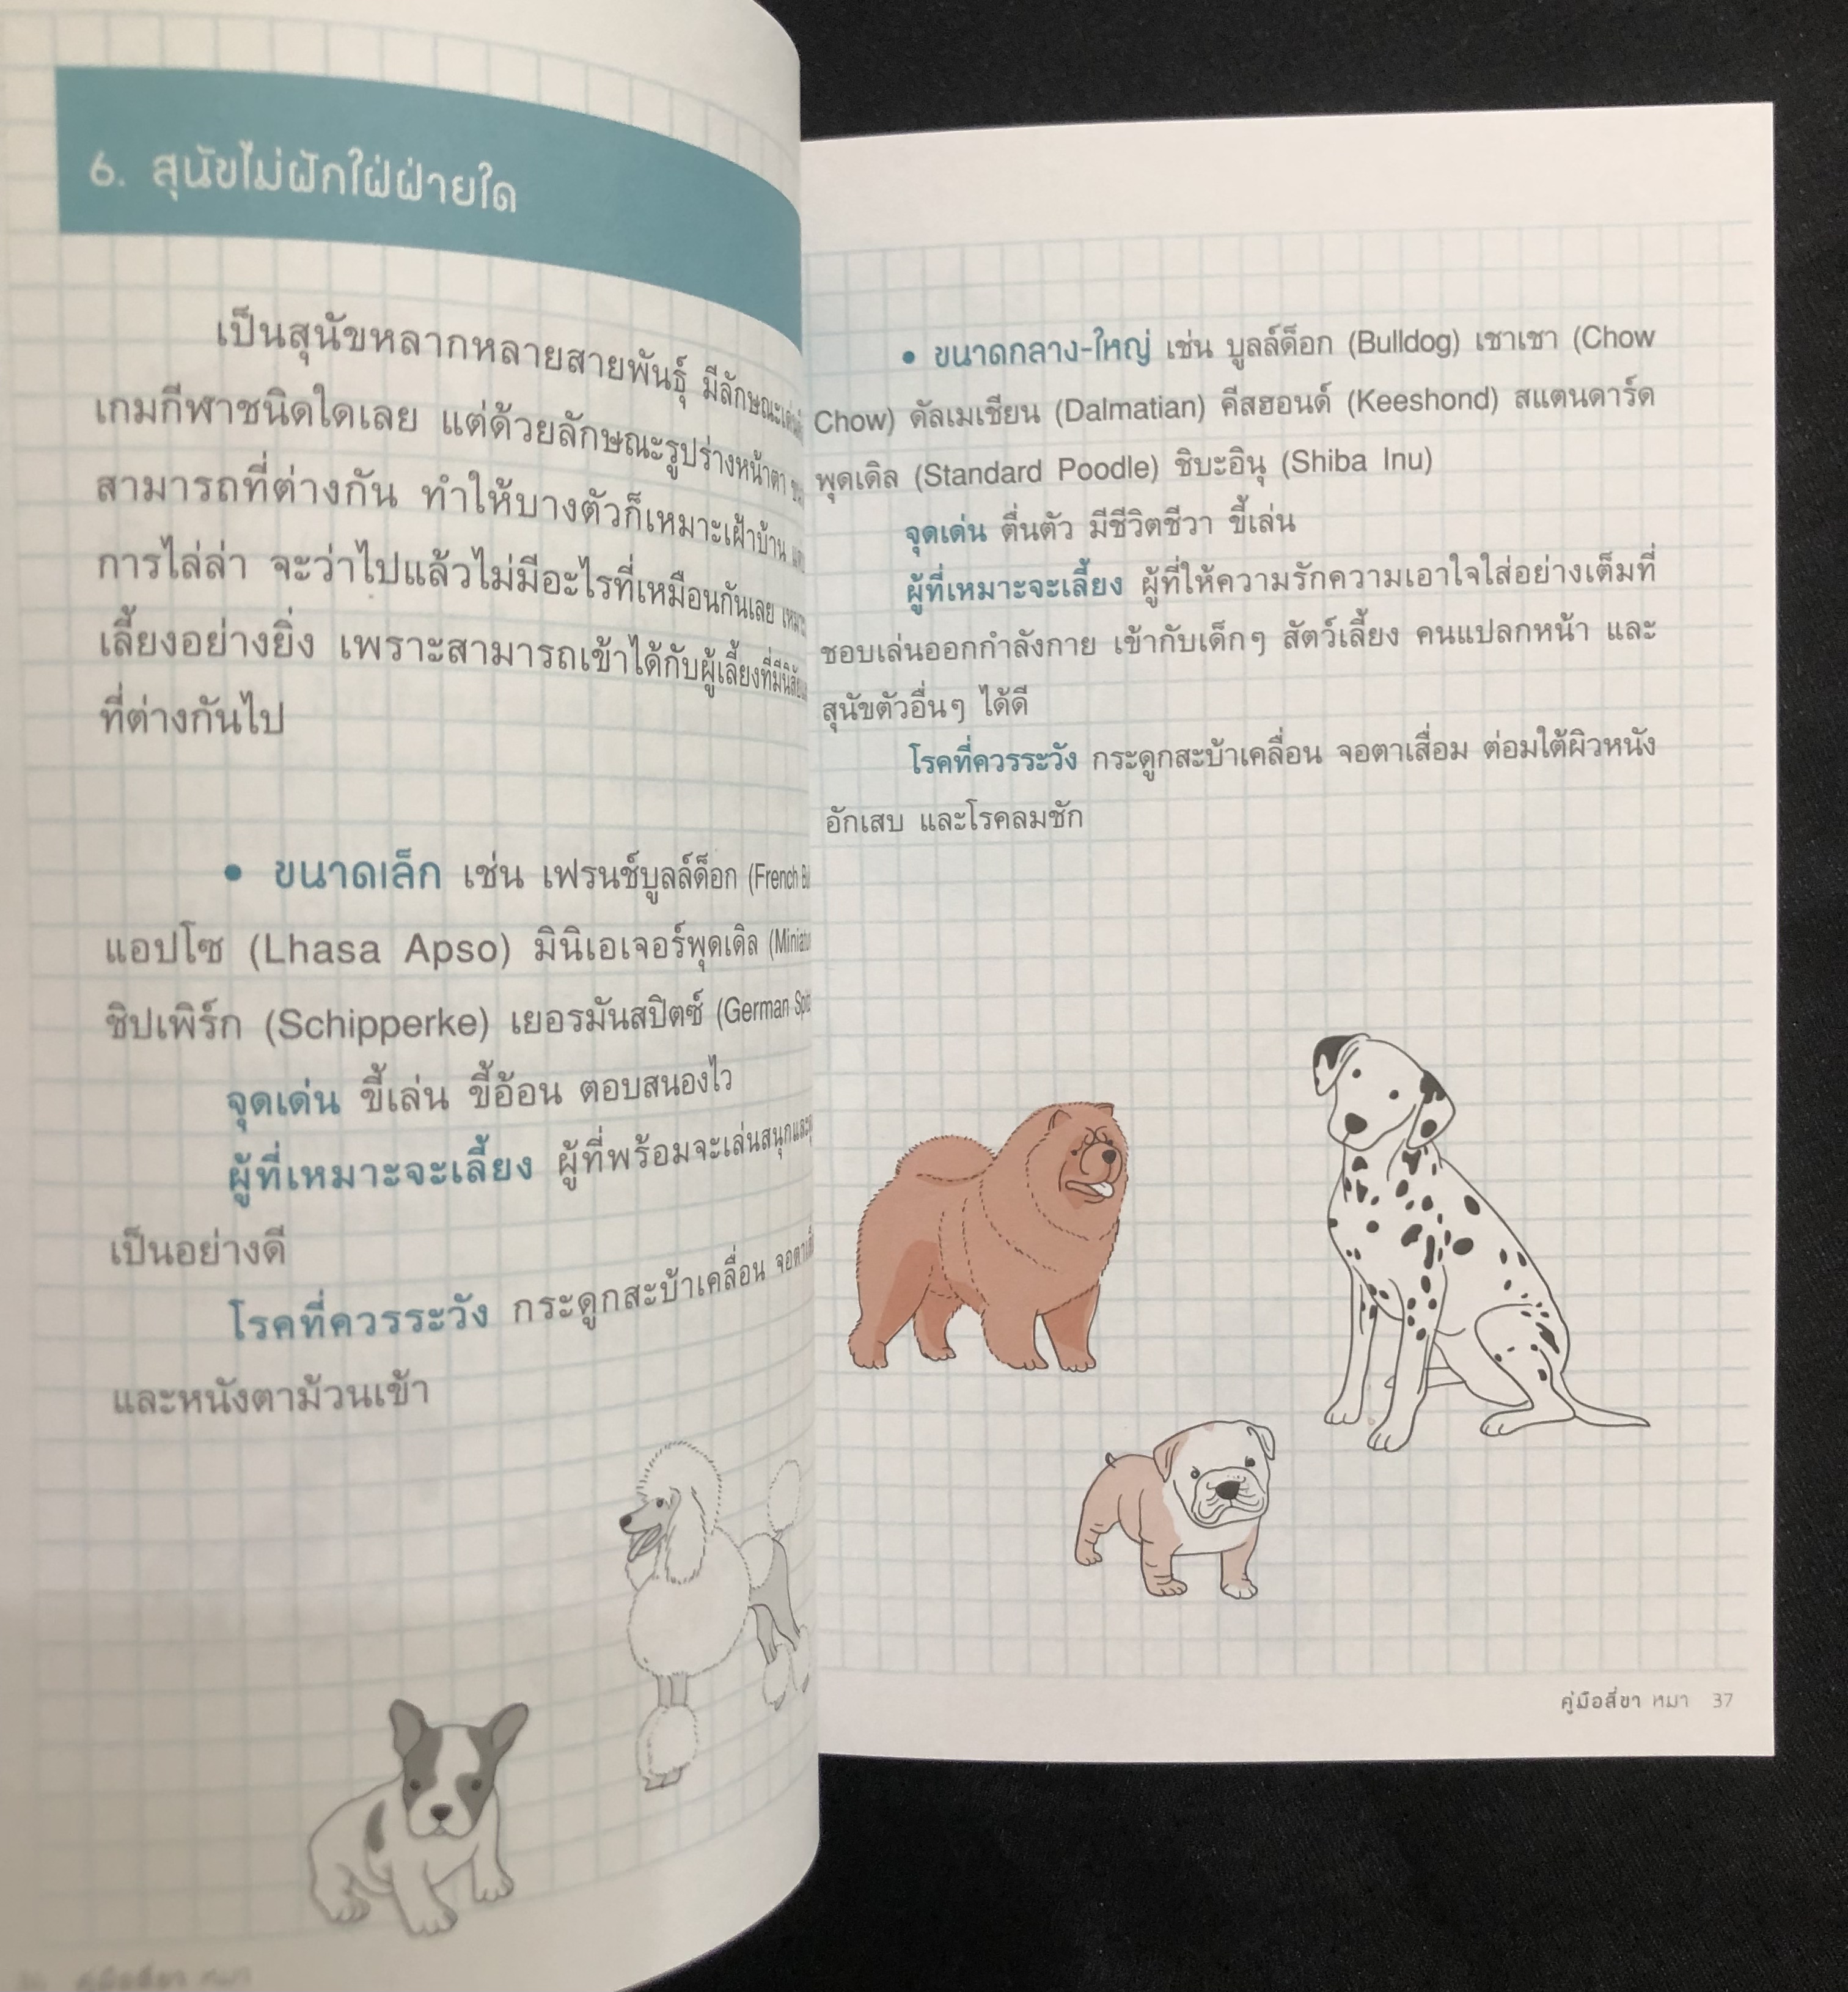 6. สุนัขไม่ฝักใฝ่ฝ่ายใด
เป็นสุนัขหลากหลายสายพันธุ์ มีลักษณะเด่น
เกมกีฬาชนิดใดเลย แต่ด้วยลักษณะรูปร่างหน้าตา
สามารถที่ต่างกัน ทำให้บางตัวก็เหมาะเฝ้าบ้าน
การไล่ล่า จะว่าไปแล้วไม่มีอะไรที่เหมือนกันเลย
เลี้ยงอย่างยิ่ง เพราะสามารถเข้าได้กับผู้เลี้ยงที่มีนิสัย
ที่ต่างกันไป
• ขนาดเล็ก เช่น เฟรนช์บูลล์ด็อก (French
แอปโซ (Lhasa Apso) มินิเอเจอร์พุดเดิล
ชิปเพิร์ก (Schipperke) เยอรมันสปิตซ์ (German
จุดเด่น ขี้เล่น ขี้อ้อน ตอบสนองไว
ผู้ที่เหมาะจะเลี้ยง ผู้ที่พร้อมจะเล่นสนุกและ
เป็นอย่างดี
โรคที่ควรระวัง กระดูกสะบ้าเคลื่อน
และหนังตาม้วนเข้า
คู่มือสี่ขา หมา
• ขนาดกลาง-ใหญ่ เช่น บูลล์ด็อก (Bulldog) เชาเชา (Chow
Chow) ดัลเมเชียน (Dalmatian) คีสฮอนด์ (Keeshond) สแตนดาร์ด
พุดเดิล (Standard Poodle) ชิบะอินุ (Shiba Inu)
จุดเด่น ตื่นตัว มีชีวิตชีวา ขี้เล่น
ผู้ที่เหมาะจะเลี้ยง ผู้ที่ให้ความรักความเอาใจใส่อย่างเต็มที่
ชอบเล่นออกกำลังกาย เข้ากับเด็กๆ สัตว์เลี้ยง คนแปลกหน้า และ
สุนัขตัวอื่นๆ ได้ดี
โรคที่ควรระวัง กระดูกสะบ้าเคลื่อน จอตาเสื่อม ต่อมใต้ผิวหนัง
อักเสบ และโรคลมชัก
คู่มือสี่ขา หมา 37